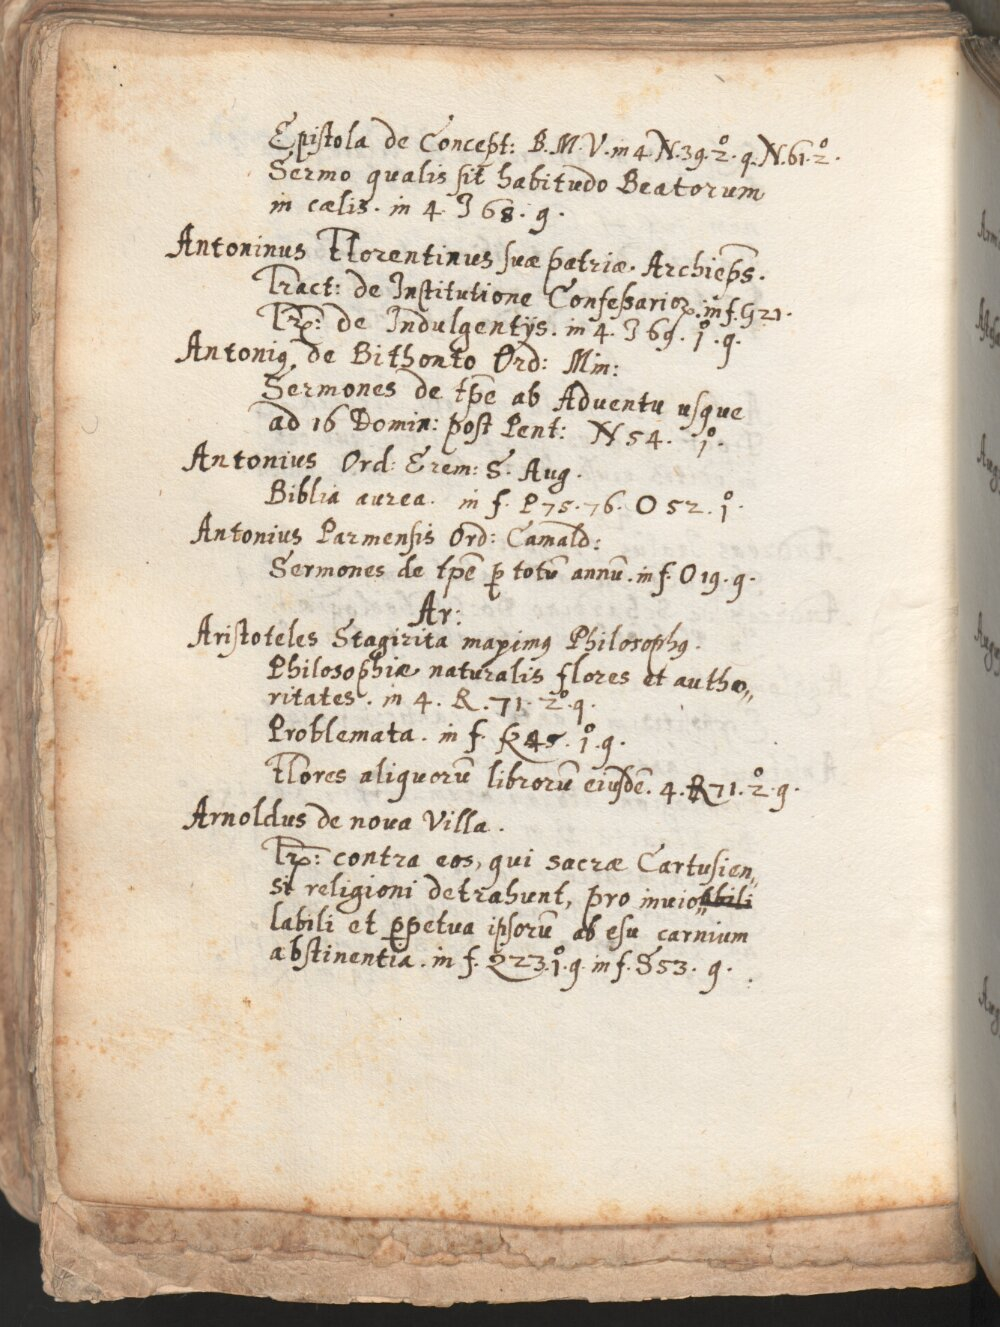 Epistola de Concept: B.M.V. in 4 N.39.2º. q. N.61.2º.
Sermo qualis sit habitudo Beatorum
in cælis. in 4. J 68. q.
Antoninus Florentinus suæ patriæ Archiep̄s.
Tract: de Institutione Confessarioꝝ. in f. G21.
Tr̄: de Indulgentijs. in 4. J 69. 1º. q.
Antoniꝰ de Bithonto Ord: Min:
Sermones de tp̄e ab Adventu usque
ad 16 Domin: post Pent: N 54. 1º.
Antonius Ord: Erem: S. Aug.
Biblia aurea. in f. P 75. 76. O 52. 1º.
Antonius Parmensis Ord: Camald:
Sermones de tp̄e ꝑ totū annū. in f. O 19. q.
Ar:
Aristoteles Stagirita maximꝰ Philosophꝰ.
Philosophiæ naturalis flores et autho„
ritates. in 4. R. 71. 2º. q.
Problemata. in f. K 45. 1º. q.
Flores aliquorū librorū eiusdē. 4. R 71. 2º. q.
Arnoldus de noua Villa.
Tr̄: contra eos, qui sacræ Cartusien„
si religioni detrahunt, pro inuio„
labili et ꝑpetua ipsorū ab esu carnium
abstinentia. in f. Q 23. 1º. q. in f. S 53. q.